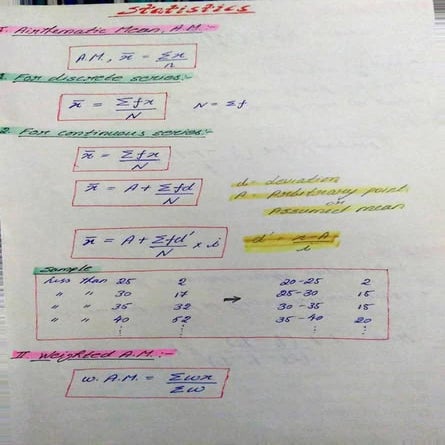 Statistics
I. Arithmetic Mean, A.M
A.M., x̄ = Σx/N
1. For discrete series:-
x̄ = Σfx/N N = Σf
2. For continuous series:-
x̄ = Σfx/N
x̄ = A + Σfd/N
d = deviation
A = Arbitrary point
or
Assumed mean
x̄ = A + Σfd'/N × i d' = x-A/i
Sample
Less than 25 2 20-25 2
" " 30 17 → 25-30 15
" " 35 32 30-35 15
" " 40 52 35-40 20
⋮ ⋮ ⋮ ⋮
II Weighted A.M.:-
w. A.M. = Σwx/Σw